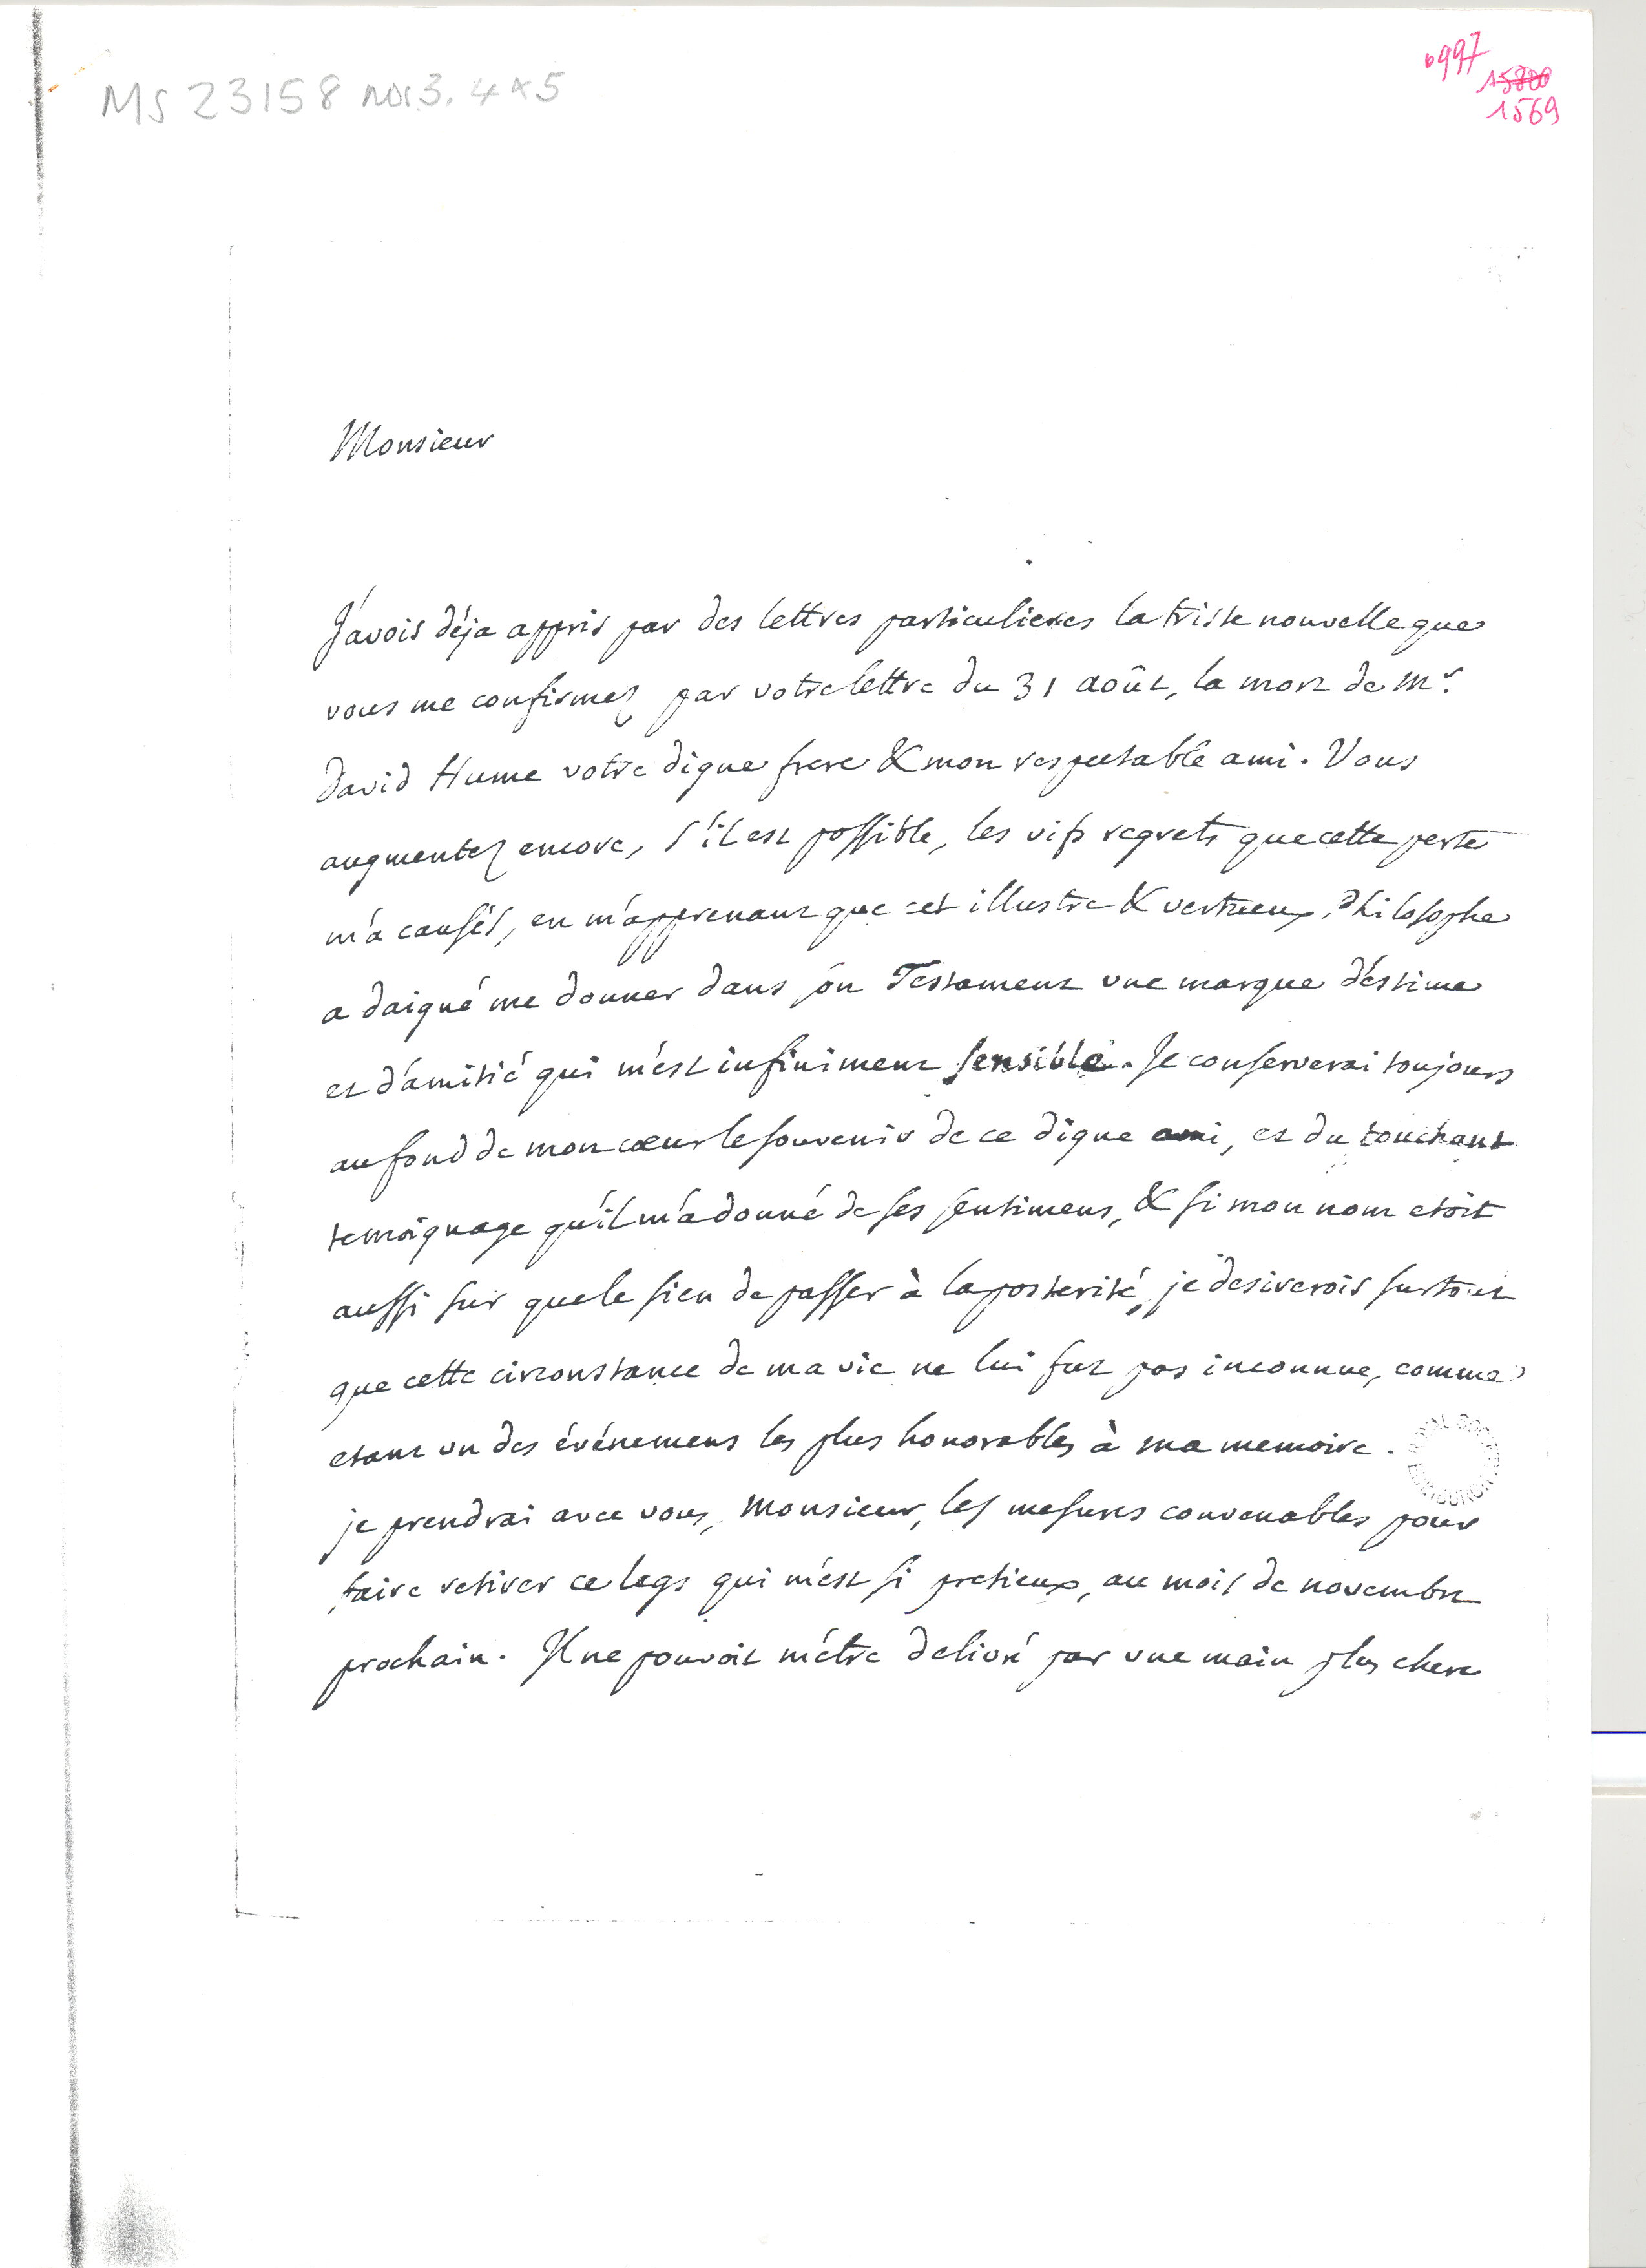 MS 23158 nos 3. 4 & 5
0997
15800
1569
Monsieur
J'avois déja appris par des lettres particulieres la triste nouvelle que
vous me confirmez par votre lettre du 31 août, la mort de Mr.
David Hume votre digne frere & mon respectable ami. Vous
augmentez encore, s'il est possible, les vifs regrets que cette perte
m'a causés, en m'apprenant que cet illustre & vertueux Philosophe
a daigné me donner dans son Testament une marque d'estime
et d'amitié qui m'est infiniment sensible. Je conserverai toujours
au fond de mon cœur le souvenir de ce digne ami, et du touchant
temoignage qu'il m'a donné de ses sentimens, & si mon nom etoit
aussi sur que le sien de passer à la posterité, je desirerois surtout
que cette circonstance de ma vie ne lui fut pas inconnue, comme
etant un des événemens les plus honorables à ma memoire.
je prendrai avec vous, Monsieur, les mesures convenables pour
faire retirer ce legs qui m'est si pretieux, au mois de novembre
prochain. Il ne pouvoit m'être delivré par une main plus chere